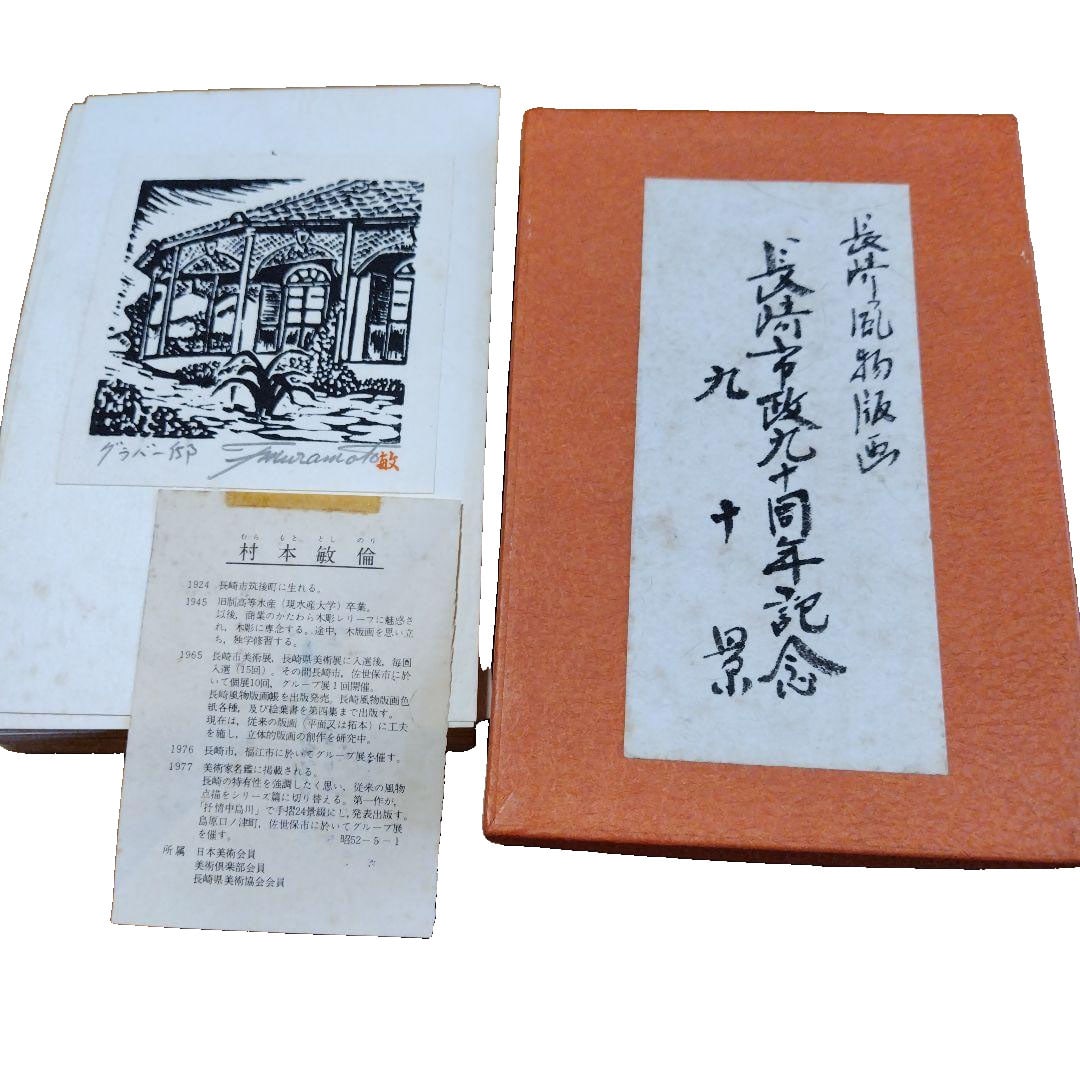 グラバー邸 T.muramoto 敏
むら もと とし のり
村本敏倫
1924 長崎市筑後町に生れる。
1945 旧制高等水産（現水産大学）卒業。
以後，商業のかたわら木彫レリーフに魅惑さ
れ，木彫に専念する。途中，木版画を思い立
ち，独学修習する。
1965 長崎市美術展，長崎県美術展に入選後，毎回
入選（15回）。その間長崎市，佐世保市に於
いて個展10回，グループ展1回開催。
長崎風物版画帳を出版発売。長崎風物版画色
紙各種，及び絵葉書を第四集まで出版す。
現在は，従来の版画（平面又は拓本）に工夫
を施し，立体的版画の創作を研究中。
1976 長崎市，福江市に於いてグループ展を催す。
1977 美術家名鑑に掲載される。
長崎の特有性を強調したく思い，従来の風物
点描をシリーズ篇に切り替える。第一作が，
「抒情中島川」で手摺24景綴にし，発表出版す。
島原口ノ津町，佐世保市に於いてグループ展
を催す。 昭52－5－1
所属 日本美術会員
美術倶楽部会員
長崎県美術協会会員
長崎風物版画
長崎市政九十周年記念
九十景